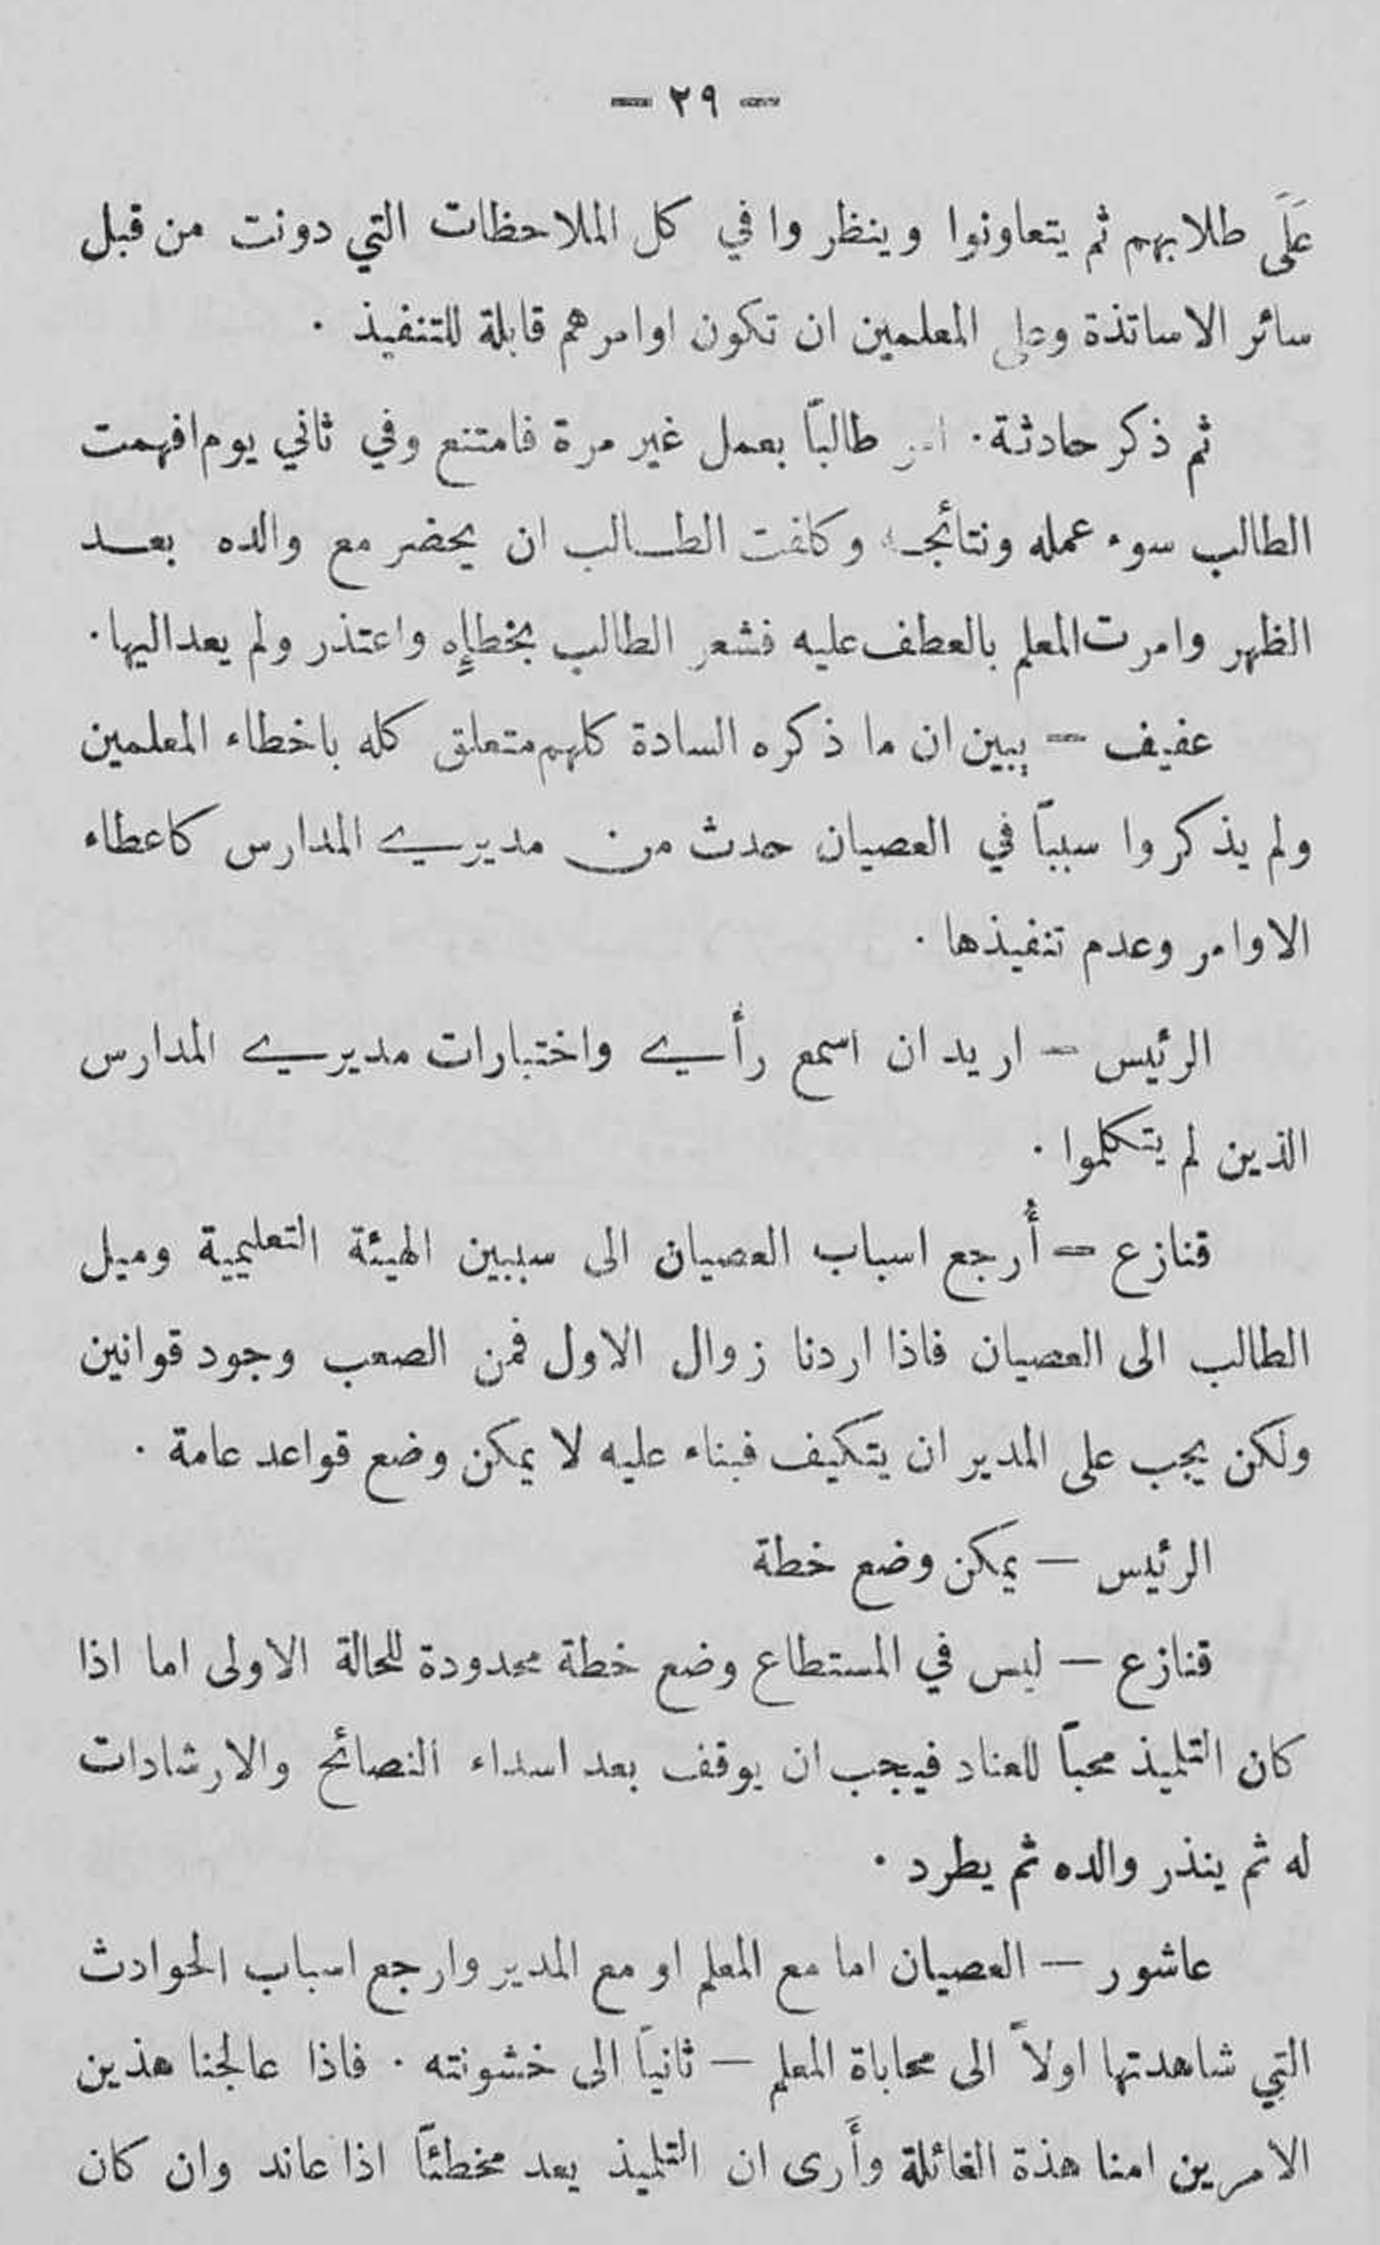 — ٢٩ —
عَلَى طلابهم ثم يتعاونوا وينظروا في كل الملاحظات التي دونت من قبل
سائر الاساتذة وعلى المعلمين ان تكون اوامرهم قابلة للتنفيذ .
ثم ذكر حادثة. امر طالباً بعمل غير مرة فامتنع وفي ثاني يوم افهمت
الطالب سوء عمله ونتائجه وكلفت الطالب ان يحضر مع والده بعد
الظهر وامرت المعلم بالعطف عليه فشعر الطالب بخطإِه واعتذر ولم يعد اليها.
عفيف — يبين ان ما ذكره السادة كلهم متعلق كله باخطاء المعلمين
ولم يذكروا سبباً في العصيان حدث من مديري المدارس كاعطاء
الاوامر وعدم تنفيذها .
الرئيس — اريد ان اسمع رأي واختبارات مديري المدارس
الذين لم يتكلموا .
قنازع — أُرجع اسباب العصيان الى سببين الهيئة التعليمية وميل
الطالب الى العصيان فاذا اردنا زوال الاول فمن الصعب وجود قوانين
ولكن يجب على المدير ان يتكيف فبناء عليه لا يمكن وضع قواعد عامة .
الرئيس — يمكن وضع خطة
قنازع — ليس في المستطاع وضع خطة محدودة للحالة الاولى اما اذا
كان التلميذ محباً للعناد فيجب ان يوقف بعد اسداء النصائح والارشادات
له ثم ينذر والده ثم يطرد .
عاشور — العصيان اما مع المعلم او مع المدير وارجع اسباب الحوادث
التي شاهدتها اولاً الى محاباة المعلم — ثانياً الى خشونته . فاذا عالجنا هذين
الامرين امنا هذة الغائلة وأَرى ان التلميذ يعد مخطئاً اذا عاند وان كان